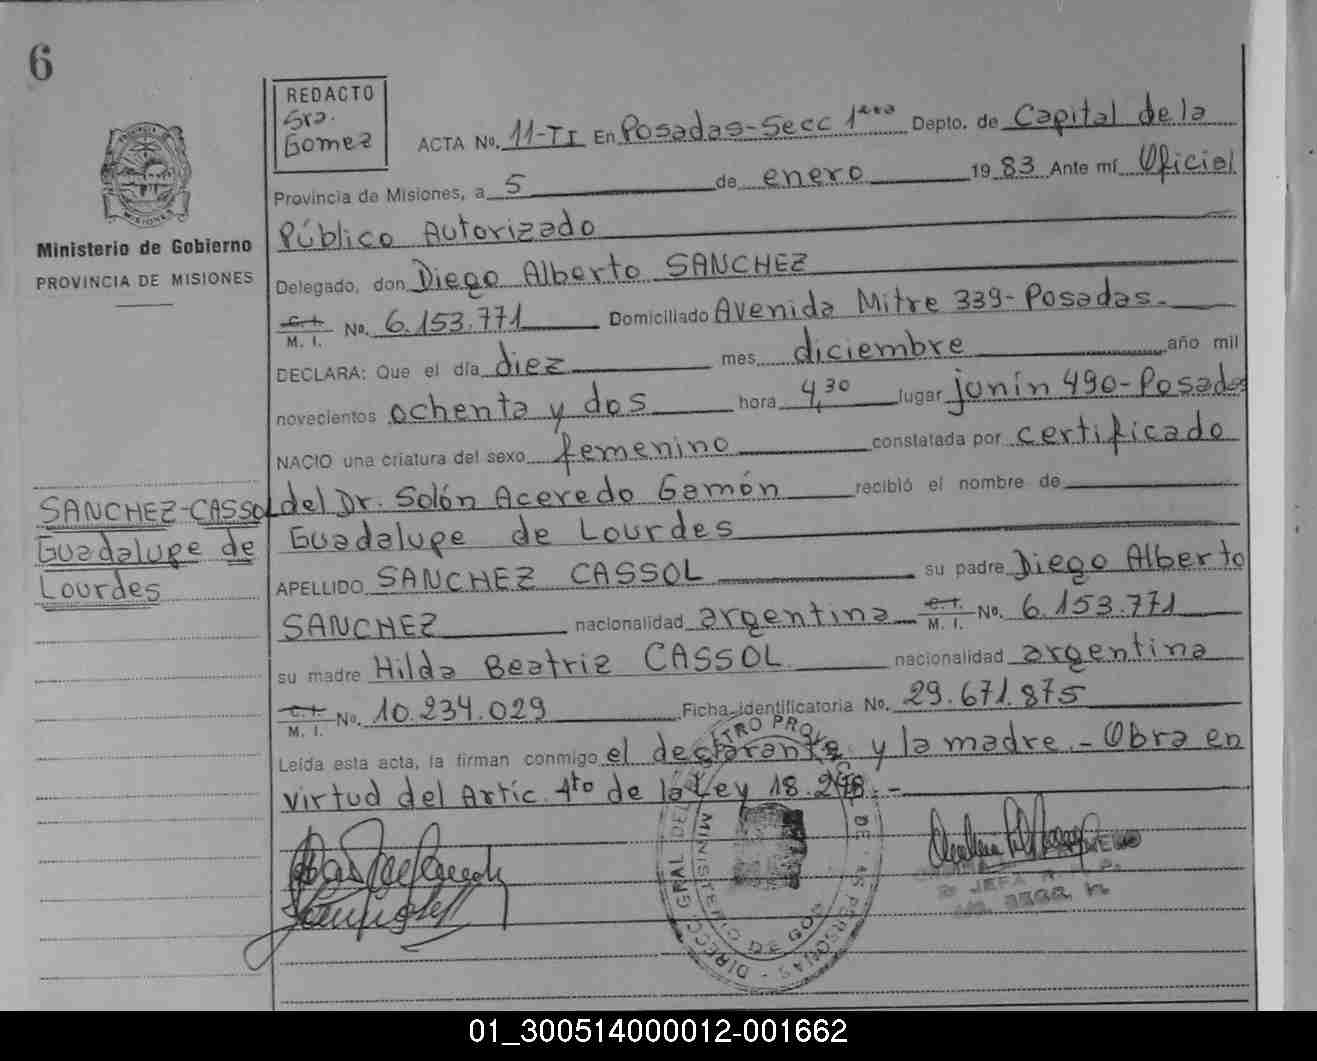 6
REDACTO
Sra.
Gomez
ACTA No. 11-TI En Posadas-Secc 1era Depto. de Capital de la
Provincia de Misiones, a 5 de enero 1983 Ante mí Oficial
Público Autorizado
Ministerio de Gobierno
PROVINCIA DE MISIONES
Delegado, don Diego Alberto SANCHEZ
C. I. M. I. No. 6.153.771 Domiciliado Avenida Mitre 339-Posadas-
DECLARA: Que el día diez mes diciembre año mil
novecientos ochenta y dos hora 4,30 lugar junín 490-Posadas
NACIO una criatura del sexo femenino constatada por certificado
del Dr. Solón Acevedo Gamón recibió el nombre de
SANCHEZ-CASSOL
Guadalupe de
Lourdes
Guadalupe de Lourdes
APELLIDO SANCHEZ CASSOL su padre Diego Alberto
SANCHEZ nacionalidad argentina C. I. M. I. No. 6.153.771
su madre Hilda Beatriz CASSOL nacionalidad argentina
C. I. M. I. No. 10.234.029 Ficha identificatoria No. 29.671.875
Leída esta acta, la firman conmigo el declarante y la madre.- Obra en
virtud del Artíc. 4to de la Ley 18.248.-
MINISTERIO DE GOB
DE LAS PERSONAS - DIRECC. GRAL DEL
JEFA
01_300514000012-001662